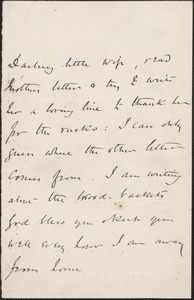 Darling little wife, read
Mothers letter & try & write
her a loving line to thank her
for the rusks: I can only
guess where the other letter
comes from. I am writing
about the bread-baskets
God bless you & keep you
well every hour I am away
from home